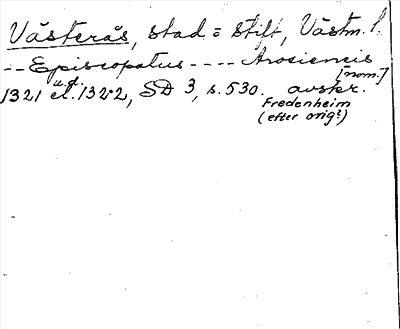 Västerås, stad = stift, Västm. l.
-- Episcopatus ---- Arosiensis
[nom.]
u.d.
1321 el. 1322, SD 3, s. 530. avskr.
Fredenheim
(efter orig?)